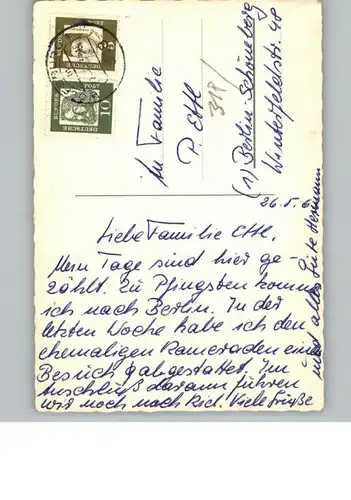 An Familie
P. Ettl
(1) Berlin-Schöneberg
Winterfeldtstr. 48
318/
DEUTSCHE
BUNDESPOST
5
DEUTSCHE
BUNDESPOST
10
26.5.6
Liebe Familie Ettl.
Mein Tage sind hier ge-
zählt. Zu Pfingsten komme
ich nach Berlin. In der
letzten Woche habe ich den
ehemaligen Kameraden eine
Besuch abgestattet. Im
Anschluß daran führen
wir noch nach Kiel. Viele Grüße
und alles Gute Hermann